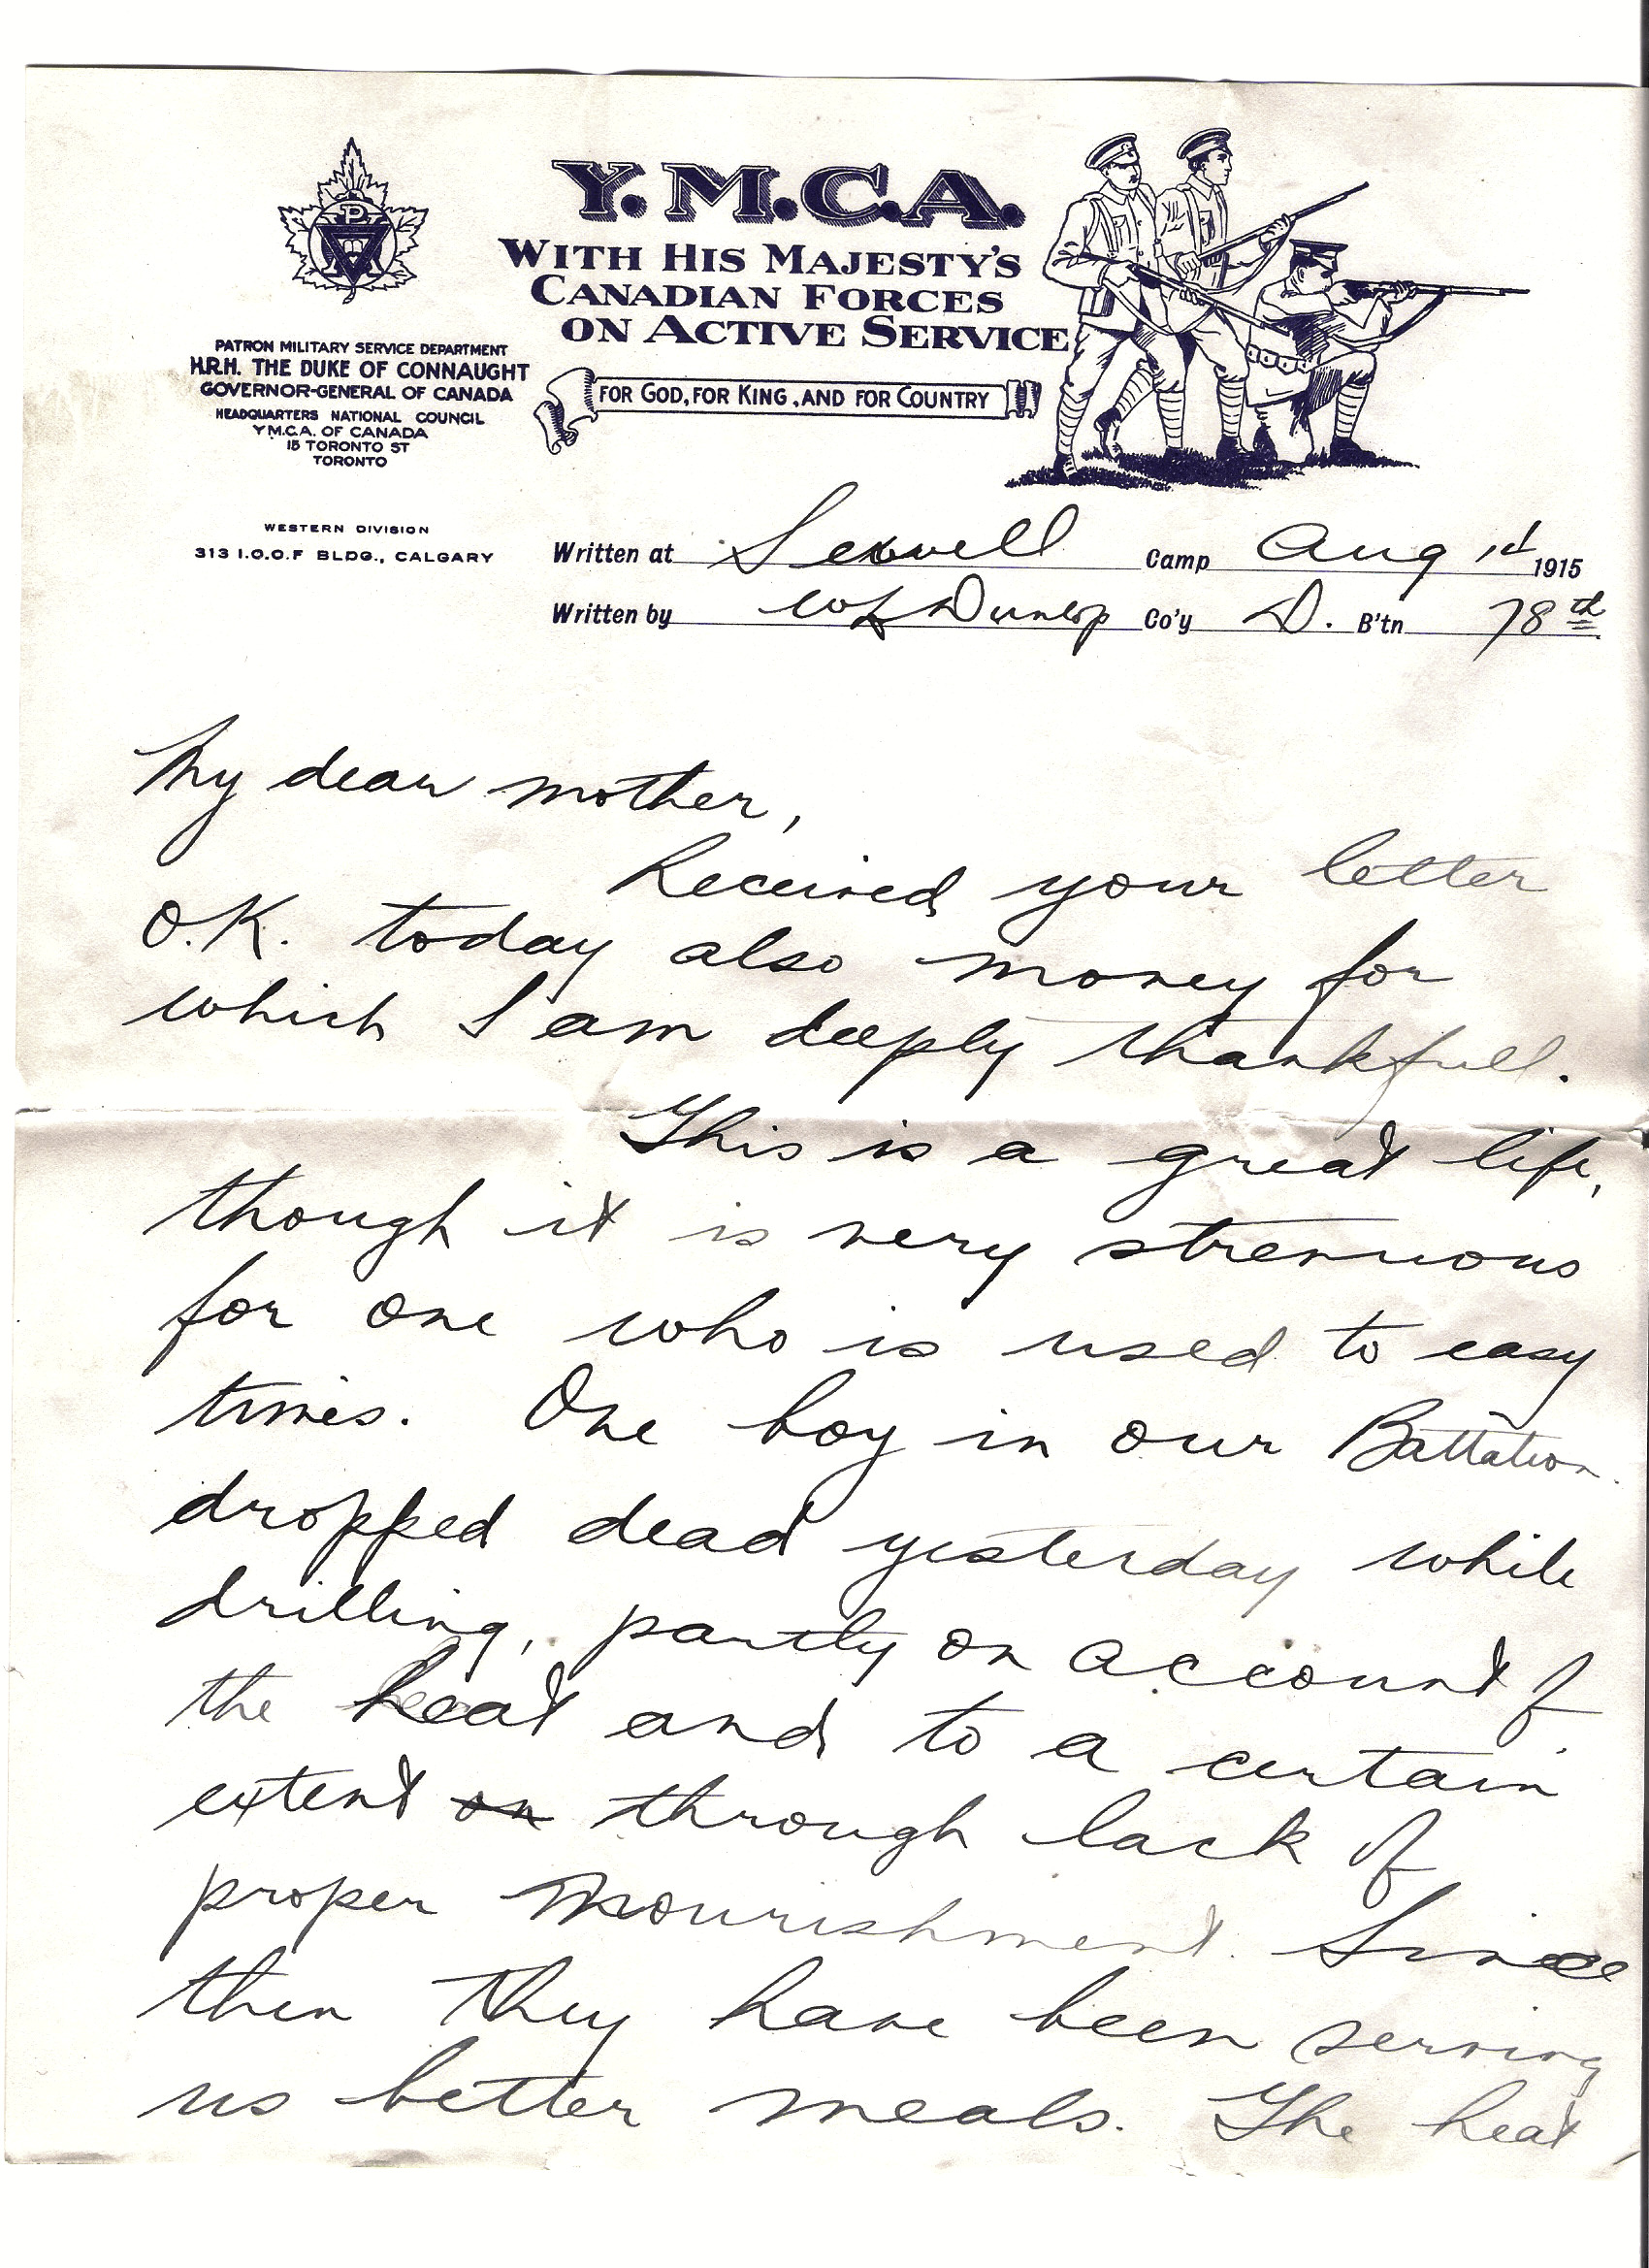 Y.M.C.A.
WITH HIS MAJESTY'S
CANADIAN FORCES
ON ACTIVE SERVICE
FOR GOD, FOR KING, AND FOR COUNTRY
PATRON MILITARY SERVICE DEPARTMENT
H.R.H. THE DUKE OF CONNAUGHT
GOVERNOR-GENERAL OF CANADA
HEADQUARTERS NATIONAL COUNCIL
Y.M.C.A. OF CANADA
15 TORONTO ST
TORONTO
WESTERN DIVISION
313 I.O.O.F BLDG., CALGARY
Written at Sewell Camp Aug 1st 1915
Written by WL Dunlop Co'y D. B'tn 78th
My dear mother,
Received your letter
O.K. today also money for
which I am deeply thankfull.
This is a great life,
though it is very strenuous
for one who is used to easy
times. One boy in our Battalion
dropped dead yesterday while
drilling, partly on account of
the heat and to a certain
extent on through lack of
proper nourishment. Since
then they have been serving
us better meals. The heat